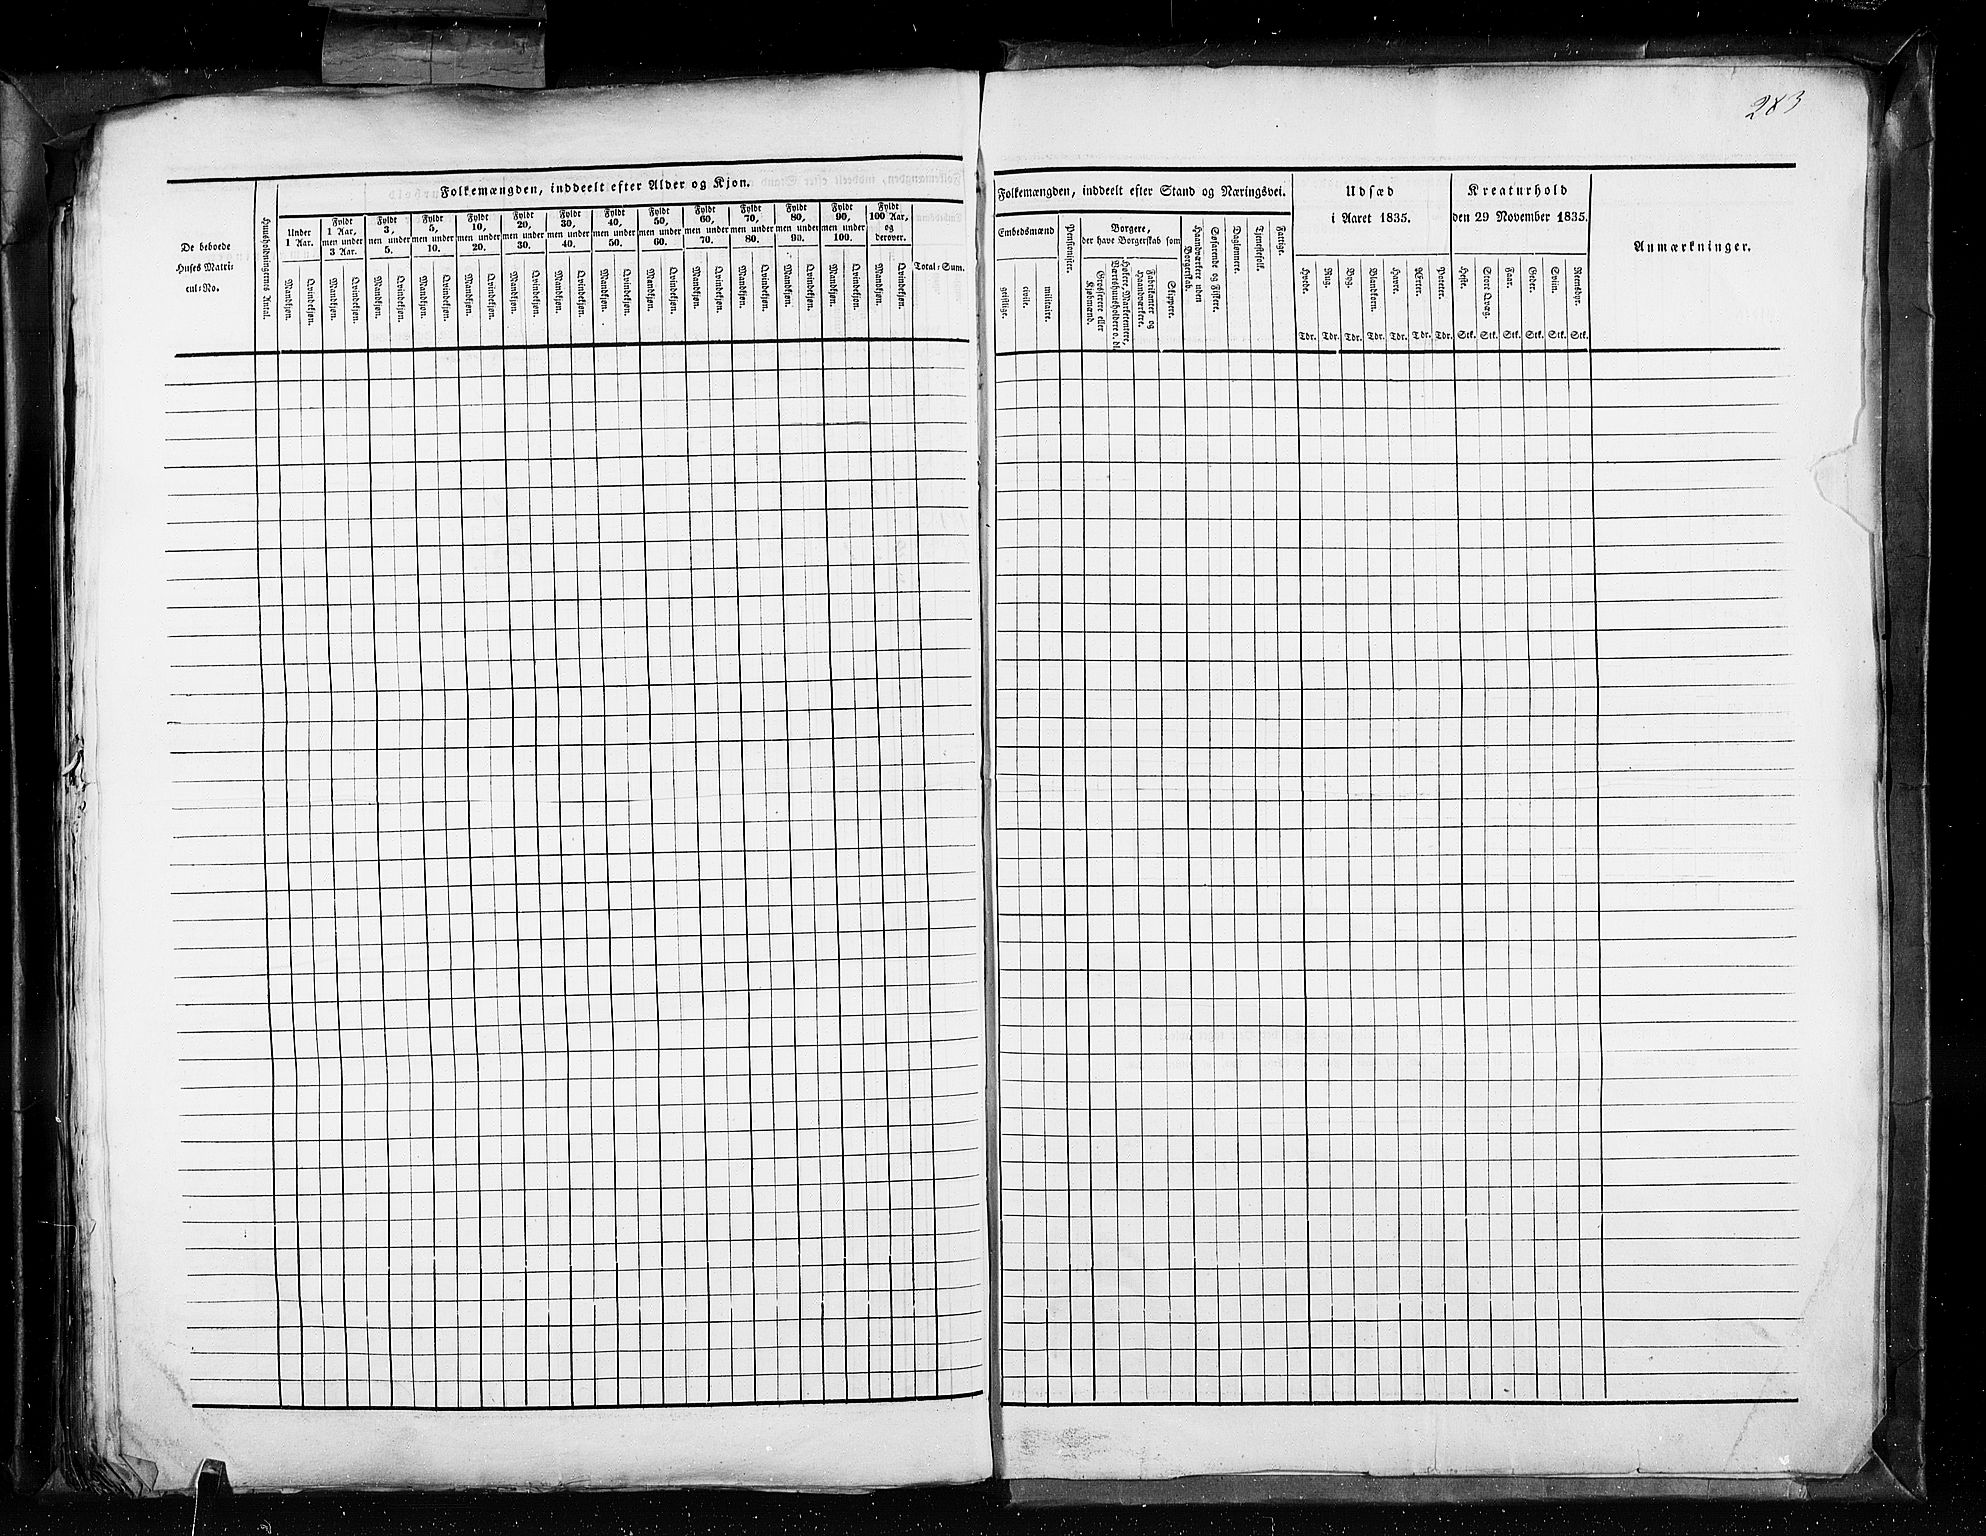 283
Folkemængden, inddeelt efter Alder og Kjøn.
De beboede
Huses Matri-
cul-No.
Huusholdningernes Antal.
Under
1 Aar.
Fyldt
1 Aar,
men under
3 Aar.
Fyldt
3,
men under
5.
Fyldt
5,
men under
10.
Fyldt
10,
men under
20.
Fyldt
20,
men under
30.
Fyldt
30,
men under
40.
Fyldt
40,
men under
50.
Fyldt
50,
men under
60.
Fyldt
60,
men under
70.
Fyldt
70,
men under
80.
Fyldt
80,
men under
90.
Fyldt
90,
men under
100.
Fyldt
100 Aar,
og
derover.
Total-Sum.
Mandkjøn.
Qvindekjøn.
Mandkjøn.
Qvindekjøn.
Mandkjøn.
Qvindekjøn.
Mandkjøn.
Qvindekjøn.
Mandkjøn.
Qvindekjøn.
Mandkjøn.
Qvindekjøn.
Mandkjøn.
Qvindekjøn.
Mandkjøn.
Qvindekjøn.
Mandkjøn.
Qvindekjøn.
Mandkjøn.
Qvindekjøn.
Mandkjøn.
Qvindekjøn.
Mandkjøn.
Qvindekjøn.
Mandkjøn.
Qvindekjøn.
Mandkjøn.
Qvindekjøn.
Folkemængden, inddeelt efter Stand og Næringsvei.
Embedsmænd
geistlige.
civile.
militaire.
Pensionister.
Borgere,
der have Borgerskab som
Grosserere eller
Kjøbmænd.
Høkere, Marketentere,
Værtshuusholdere o. dl.
Fabrikanter og
Haandværkere.
Skippere.
Haandværkere uden
Borgerskab.
Søfarende og Fiskere.
Daglønnere.
Tjenestefolk.
Fattige.
Udsæd
i Aaret 1835.
Hvede.
Rug.
Byg.
Blandkorn.
Havre.
Ærter.
Poteter.
Tdr. Tdr. Tdr. Tdr. Tdr. Tdr. Tdr.
Kreaturhold
den 29 November 1835.
Heste.
Stort Qvæg.
Faar.
Geder.
Sviin.
Rensdyr.
Stk. Stk. Stk. Stk. Stk. Stk.
Anmærkninger.